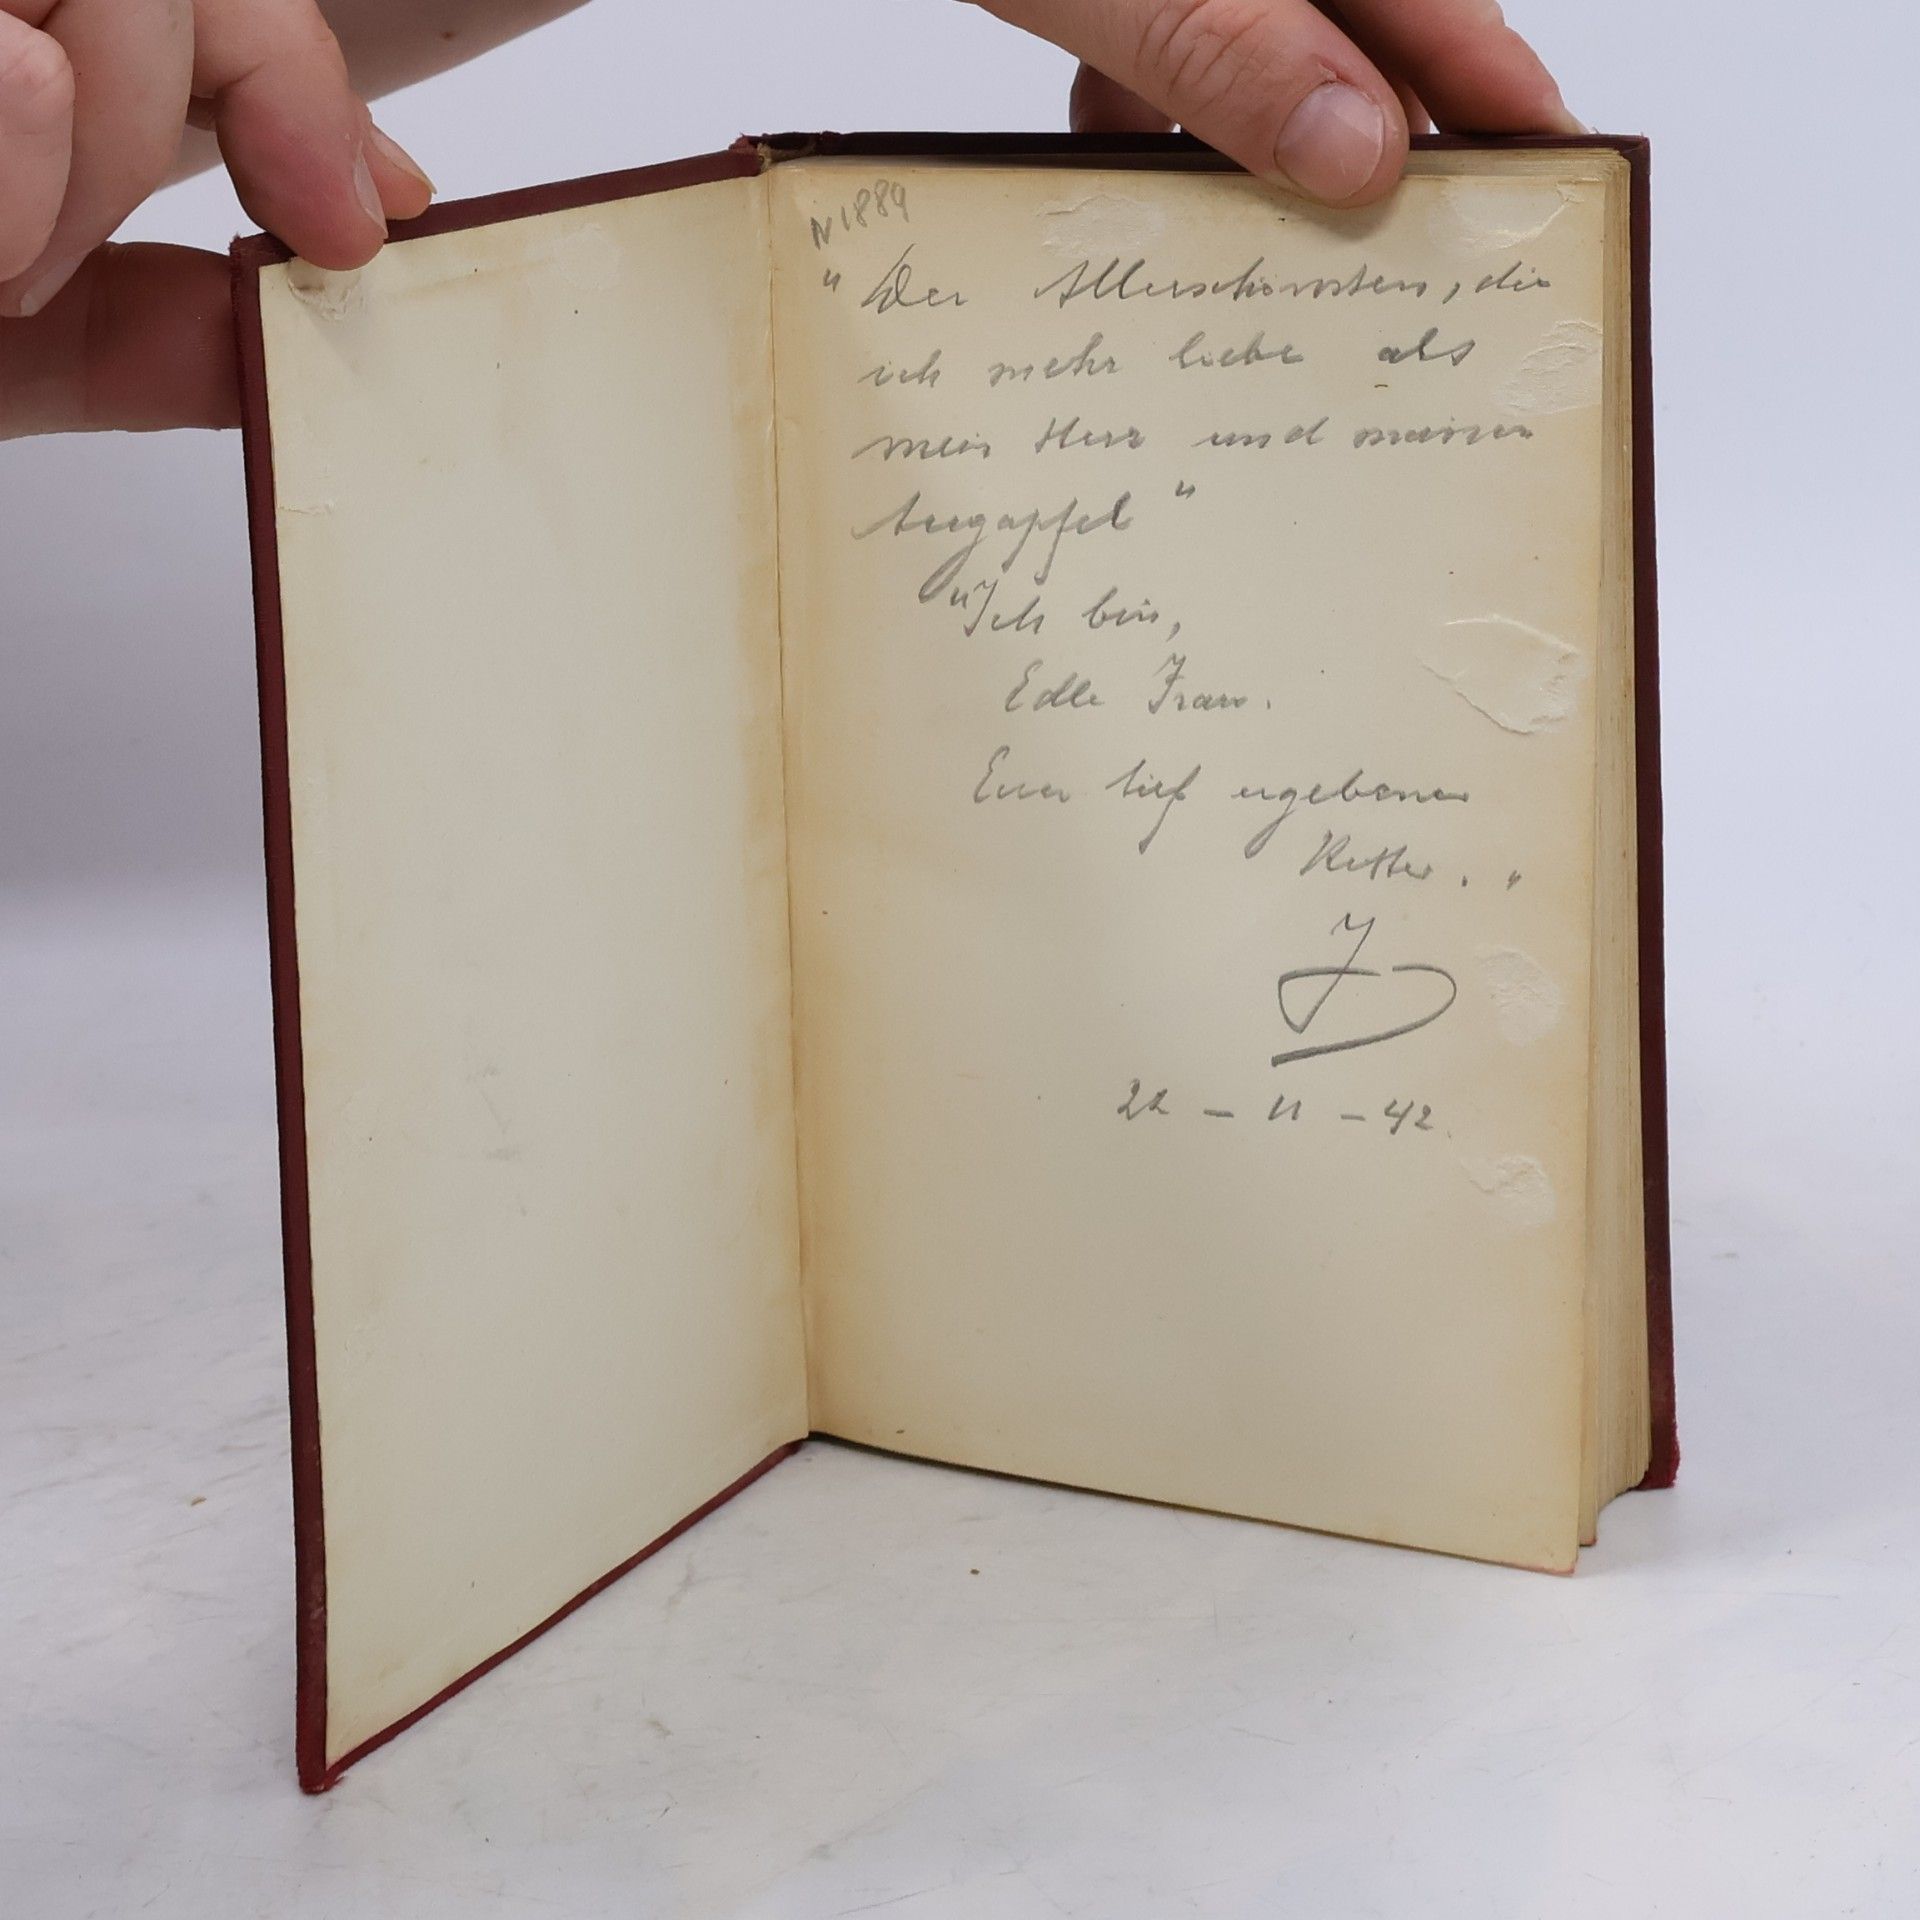 N 1889
" Der Allerschönsten, die
ich mehr liebe als
mein Herz und meinen
Augapfel "
"Ich bin,
Edle Frau.
Euer tief ergebener
Ritter. "
22 - 11 - 42.